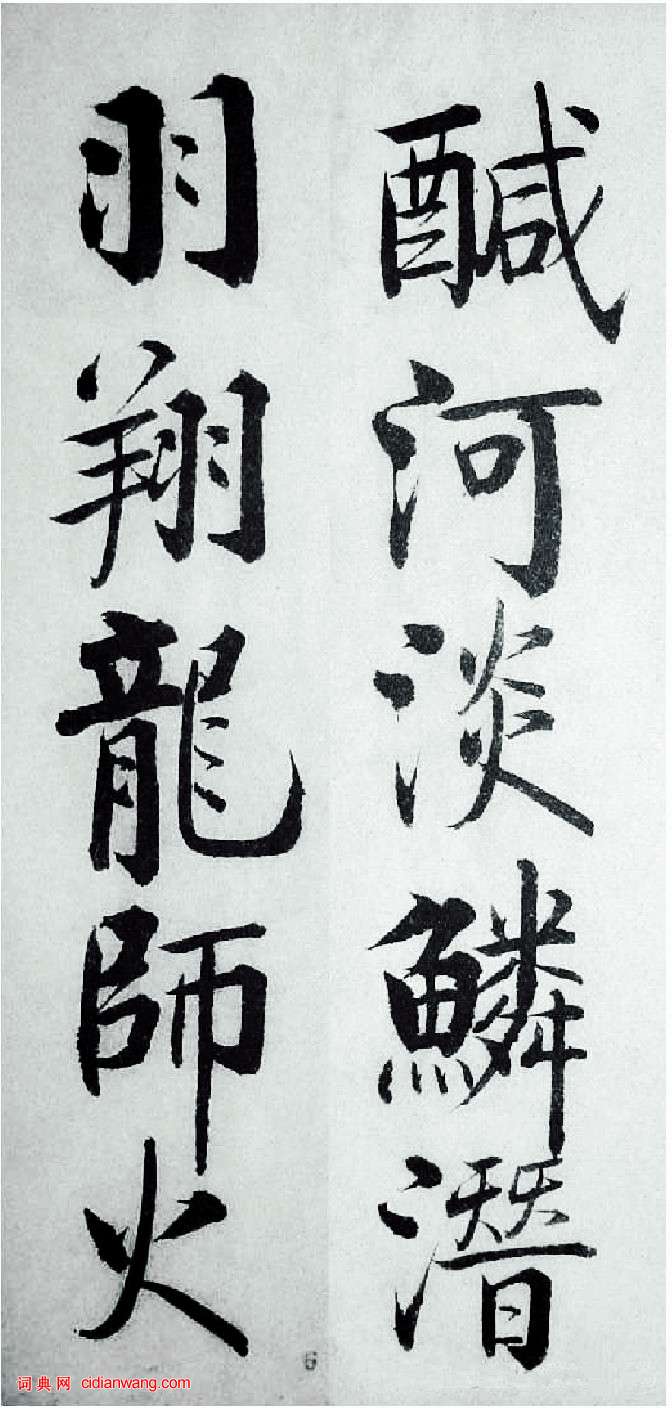 醎河淡鱗潛
羽翔龍師火
6
词典网 cidianwang.com